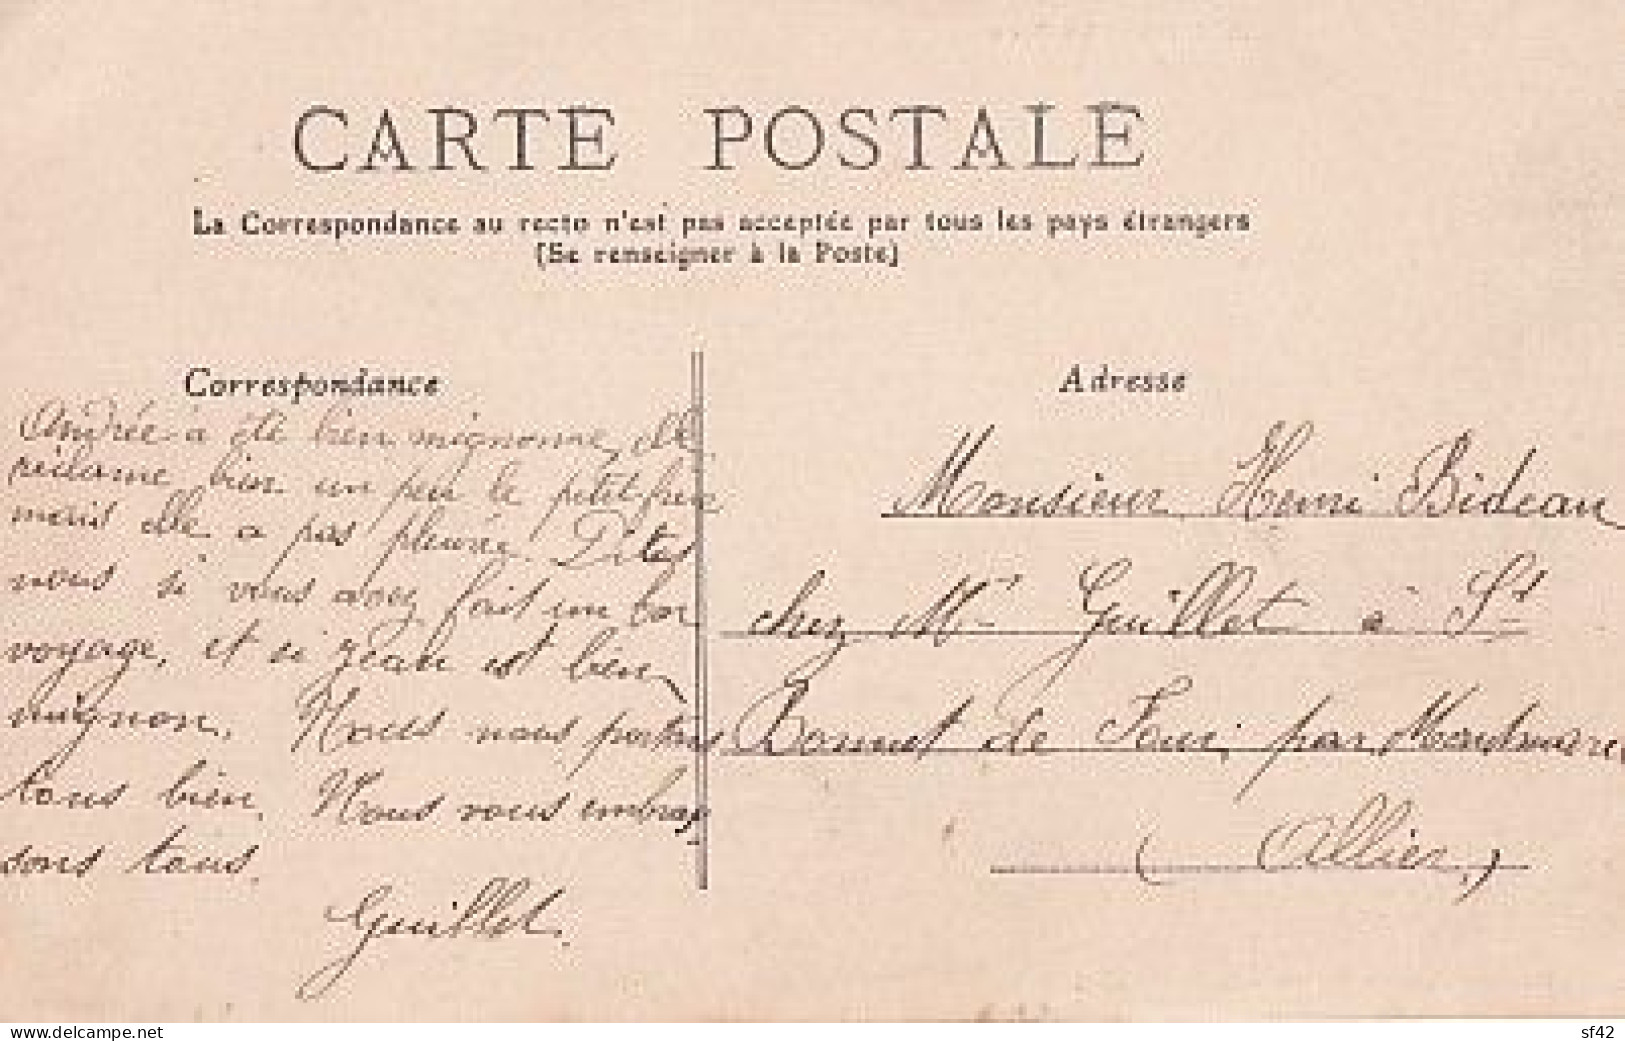 CARTE POSTALE
La Correspondance au recto n'est pas acceptée par tous les pays étrangers
(Se renseigner à la Poste)
Correspondance
Andrée à été bien mignonne, elle
réclame bien un peu le petit frère
mais elle a pas pleurée. Dites
nous si vous avez fait un bon
voyage, et si Jean est bien
mignon. Nous nous portons
tous bien. Nous vous embras
sons tous.
Guillet.
Adresse
Monsieur Henri Bideau
chez Mr Guillet à St
Bonnet de Four par Montmarau
(Allier)
delcampe.net
sf42